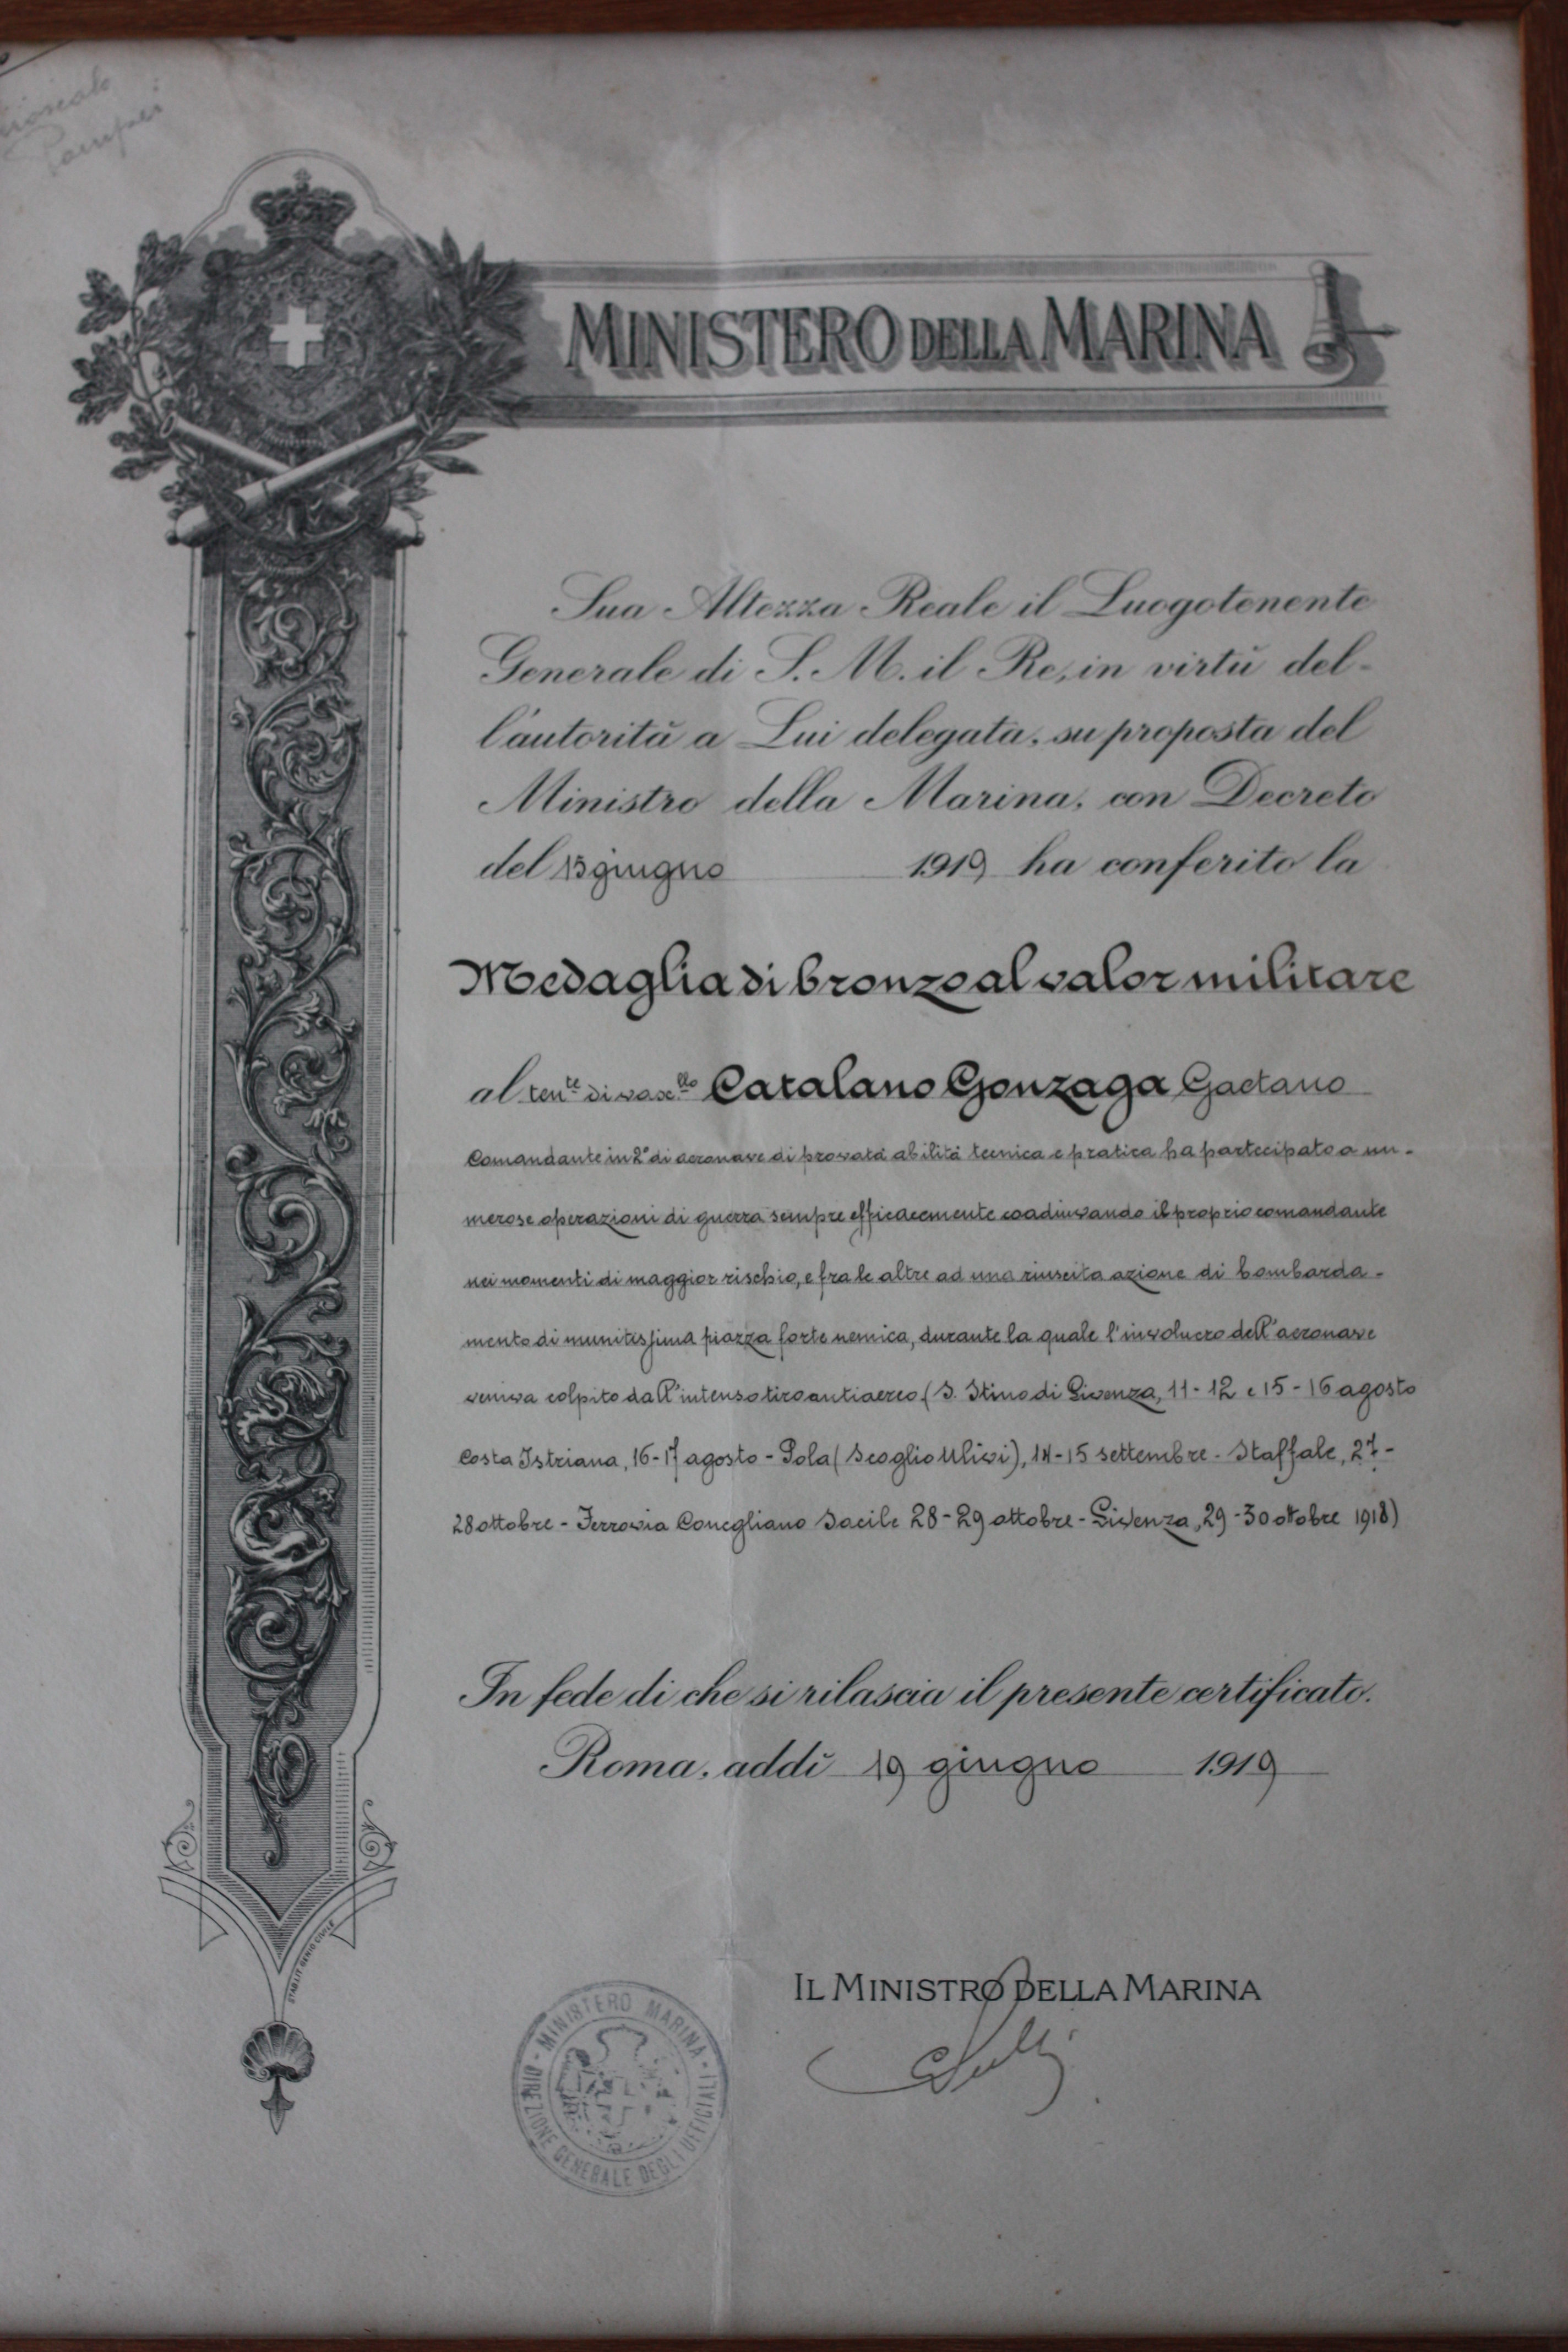 Pompei
MINISTERO DELLA MARINA
Sua Altezza Reale il Luogotenente
Generale di S. M. il Re, in virtù del-
l'autorità a Lui delegata, su proposta del
Ministro della Marina, con Decreto
del 15 giugno 1919 ha conferito la
Medaglia di bronzo al valor militare
al ten.te di vasc.llo Catalano Gonzaga Gaetano
Comandante in 2° di aeronave di provata abilità tecnica e pratica ha partecipato a nu-
merose operazioni di guerra sempre efficacemente coadiuvando il proprio comandante
nei momenti di maggior rischio, e fra le altre ad una riuscita azione di bombarda-
mento di munitissima piazza forte nemica, durante la quale l'involucro dell'aeronave
veniva colpito dall'intenso tiro antiaereo (S. Stino di Livenza, 11-12 e 15-16 agosto
Costa Istriana, 16-17 agosto - Pola (Scoglio Ulivi), 14-15 settembre - Staffale, 27-
28 ottobre - Ferrovia Conegliano Sacile 28-29 ottobre - Livenza, 29-30 ottobre 1918)
In fede di che si rilascia il presente certificato.
Roma, addì 19 giugno 1919
STABILIT. GENIO CIVILE
IL MINISTRO DELLA MARINA
MINISTERO MARINA
DIREZIONE GENERALE DEGLI UFFICIALI